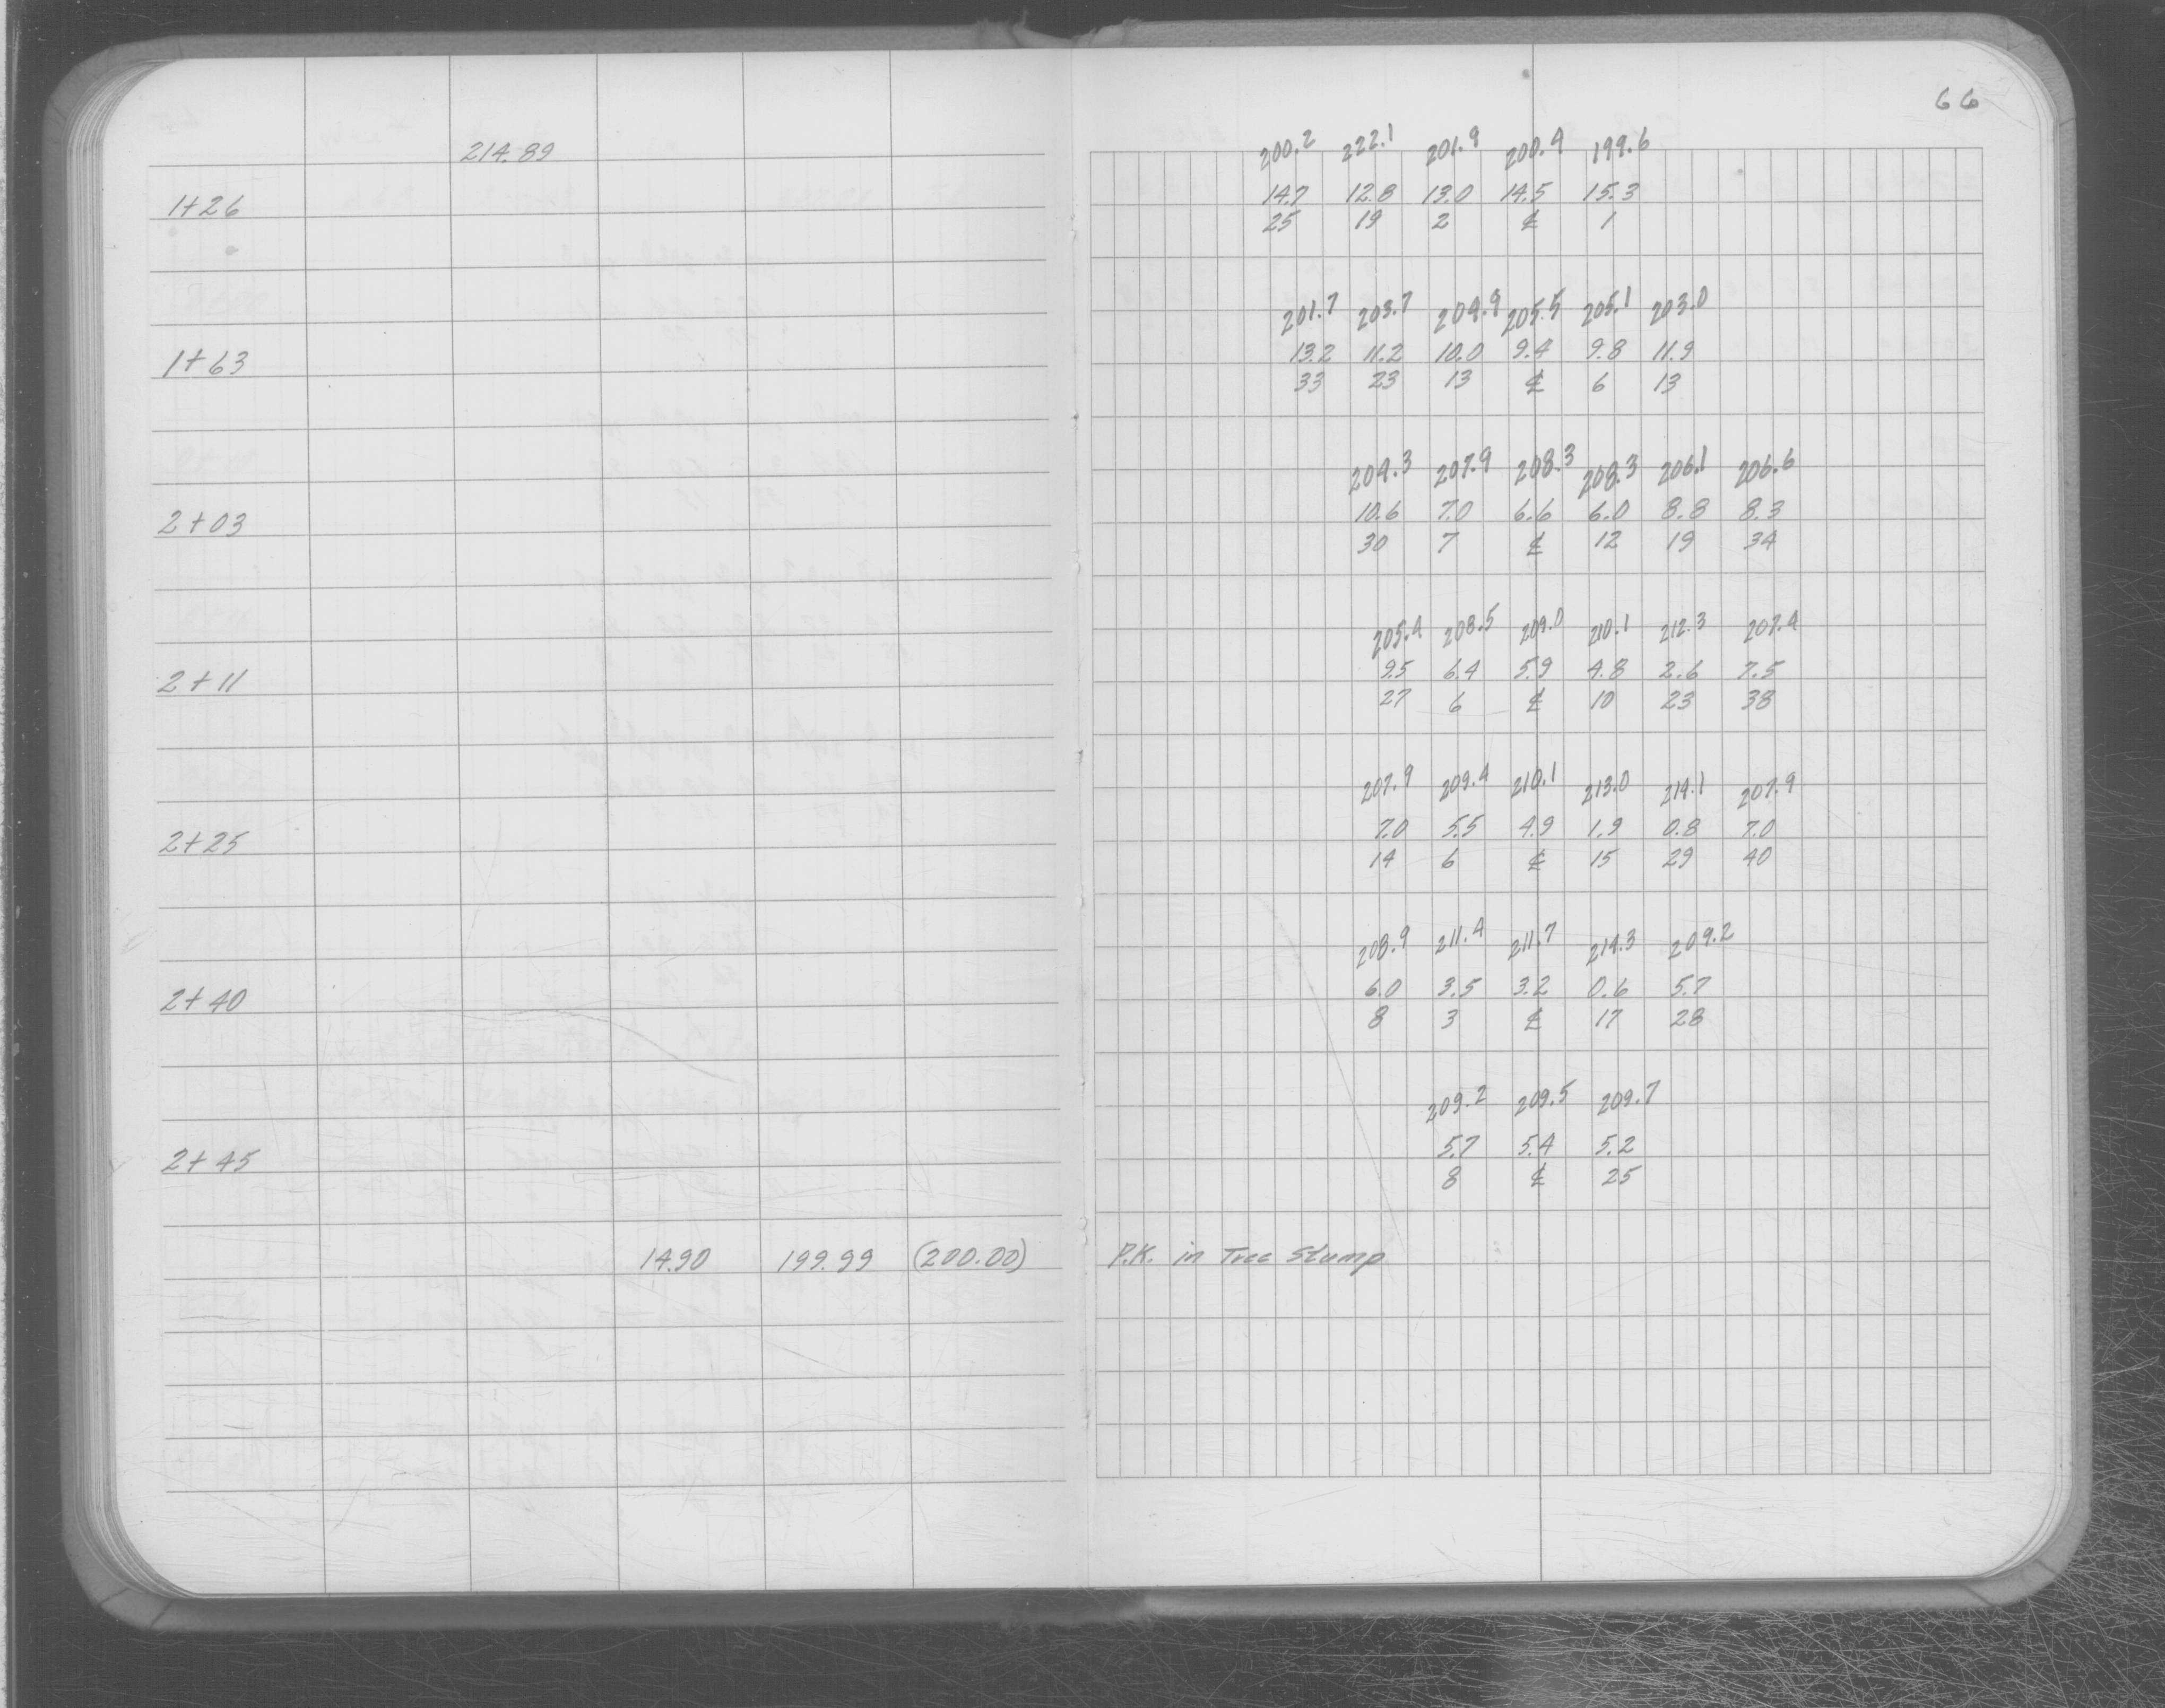 66
214.89 200.2 222.1 201.9 200.4 199.6
1+26 14.7 12.8 13.0 14.5 15.3
25 19 2 ℄ 1
201.7 203.7 204.9 205.5 205.1 203.0
1+63 13.2 11.2 10.0 9.4 9.8 11.9
33 23 13 ℄ 6 13
204.3 207.9 208.3 208.3 206.1 206.6
2+03 10.6 7.0 6.6 6.0 8.8 8.3
30 7 ℄ 12 19 34
205.4 208.5 209.0 210.1 212.3 207.4
2+11 9.5 6.4 5.9 4.8 2.6 7.5
27 6 ℄ 10 23 38
207.9 209.4 210.1 213.0 214.1 207.9
2+25 7.0 5.5 4.9 1.9 0.8 7.0
14 6 ℄ 15 29 40
208.9 211.4 211.7 214.3 209.2
2+40 6.0 3.5 3.2 0.6 5.7
8 3 ℄ 17 28
209.2 209.5 209.7
2+45 5.7 5.4 5.2
8 ℄ 25
14.90 199.99 (200.00) P.K. in Tree Stump